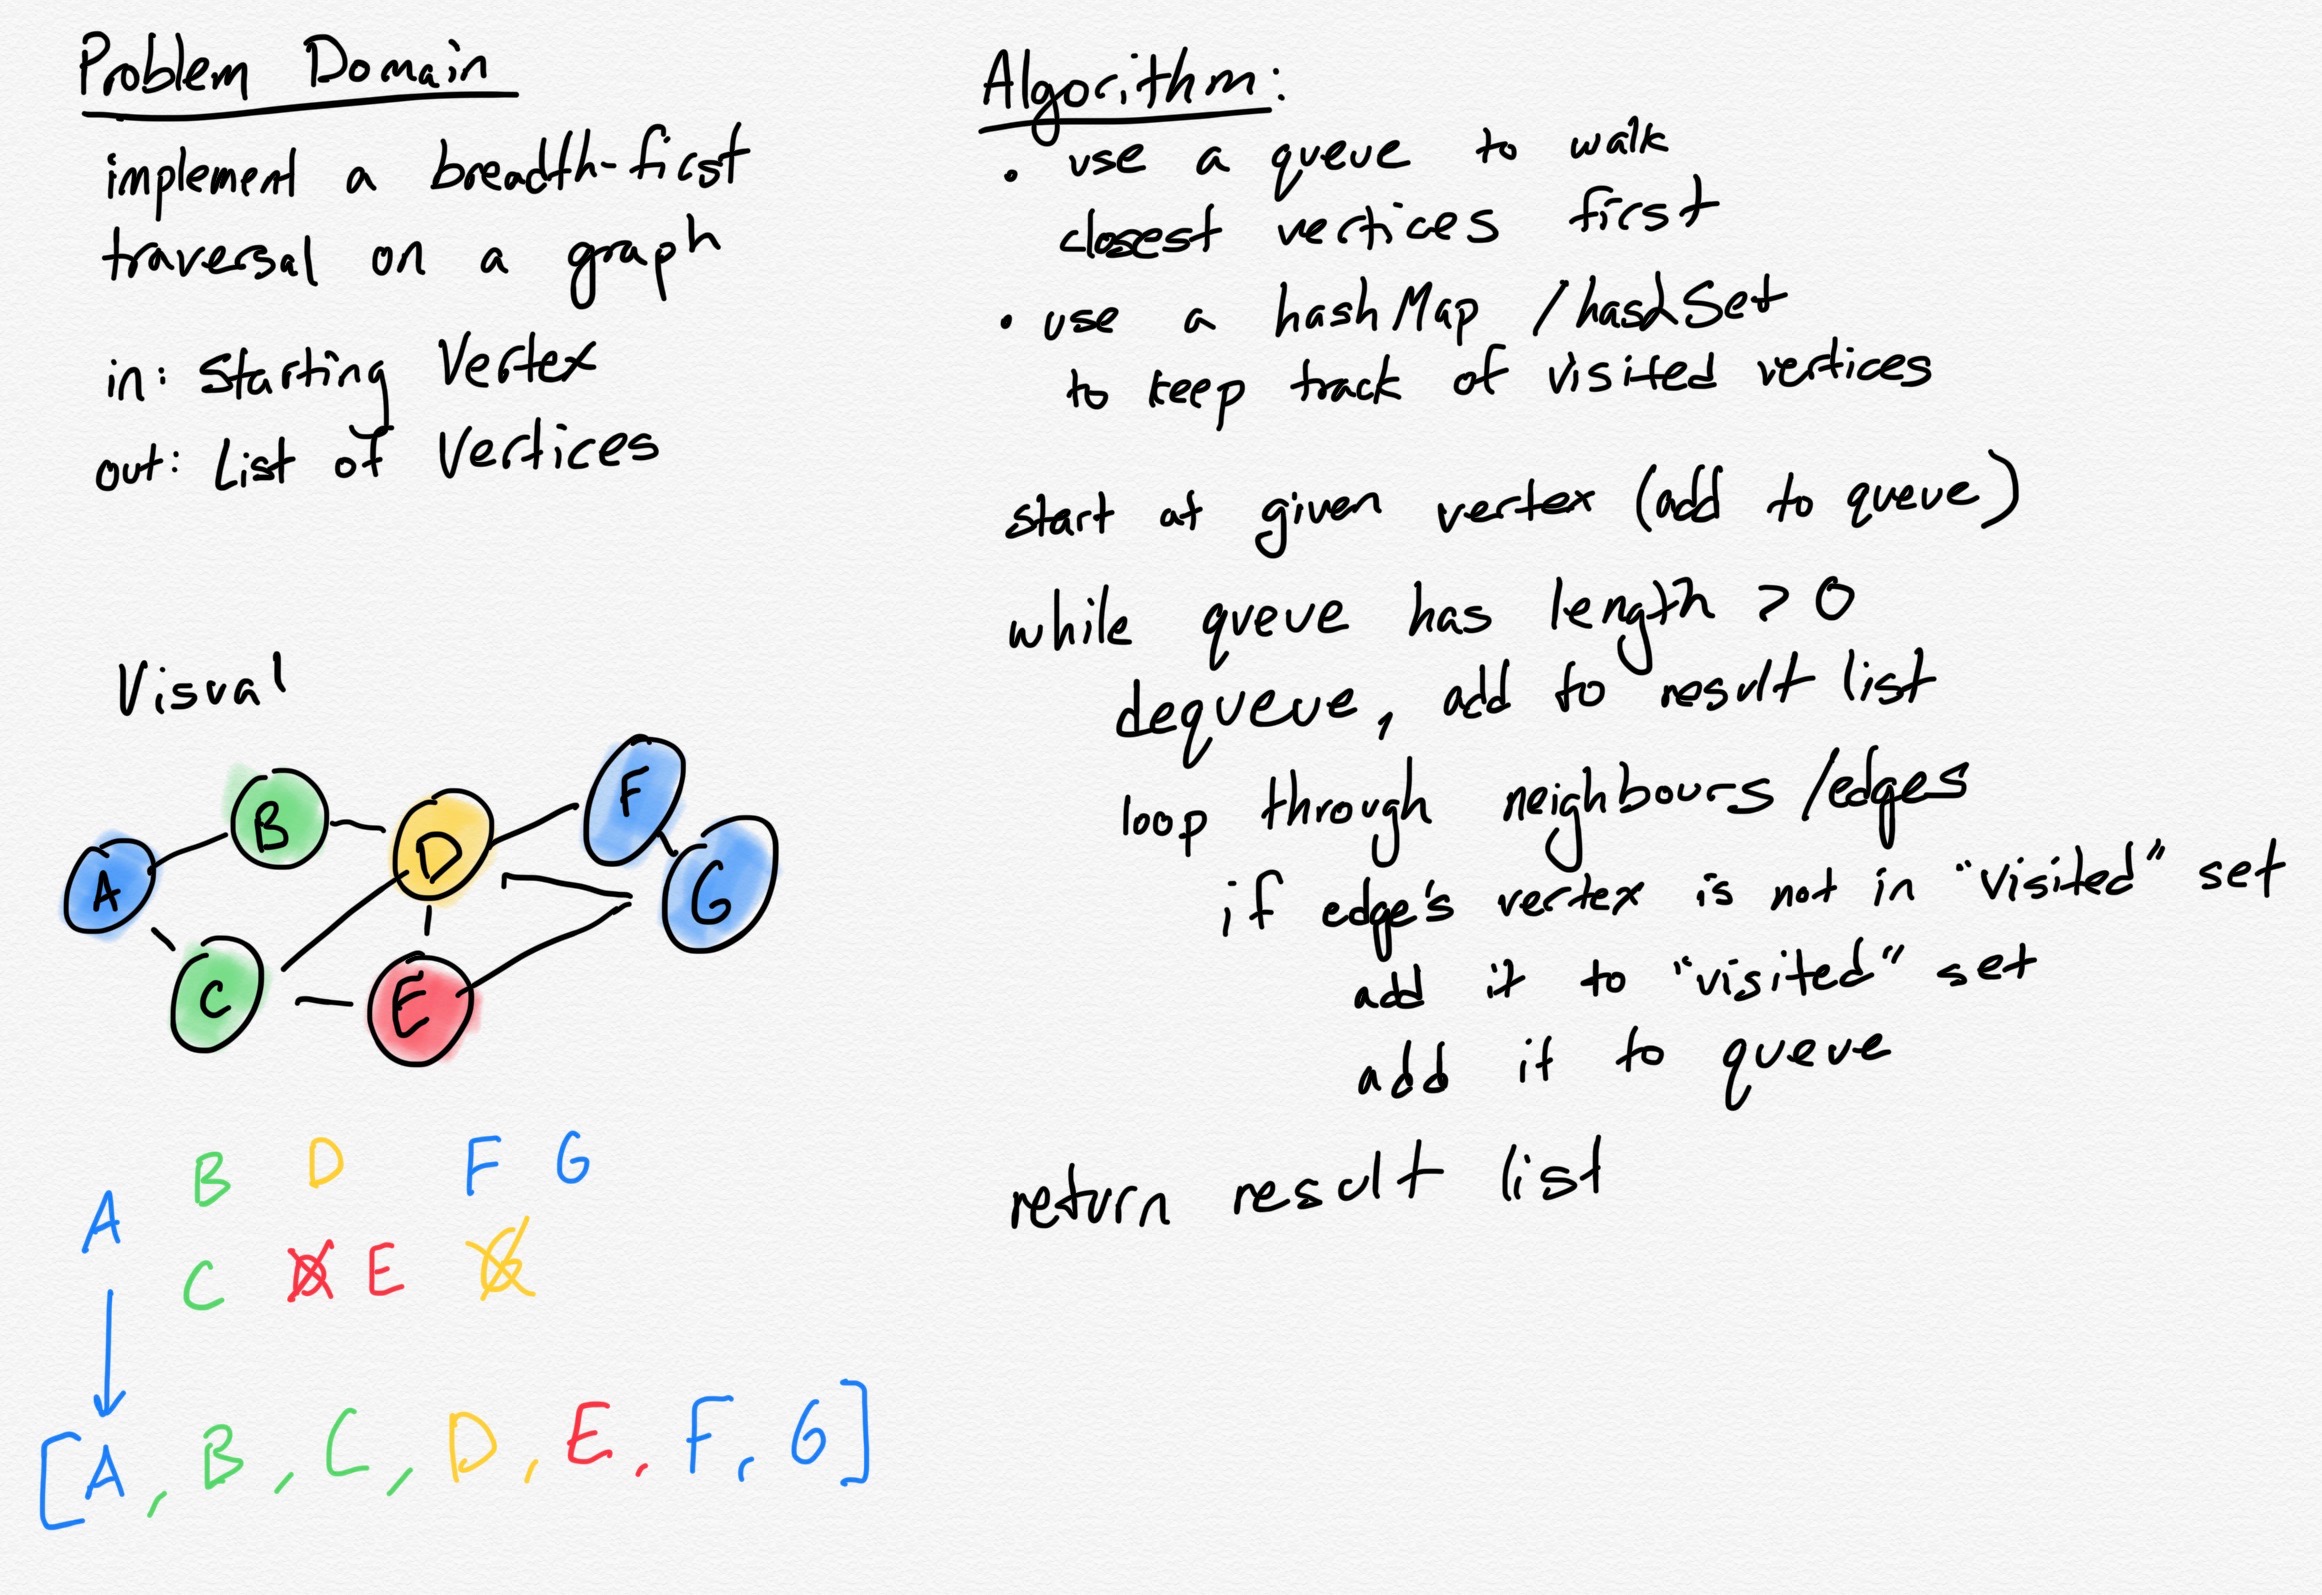 Problem Domain
implement a breadth-first
traversal on a graph
in: Starting Vertex
out: List of Vertices
Visual
A
B
C
D
E
F
G
B D F G
A
C E
[A, B, C, D, E, F, G]
Algorithm:
• use a queue to walk
closest vertices first
• use a hashMap / hashSet
to keep track of visited vertices
start at given vertex (add to queue)
while queue has length > 0
dequeue, add to result list
loop through neighbours / edges
if edge's vertex is not in "visited" set
add it to "visited" set
add it to queue
return result list